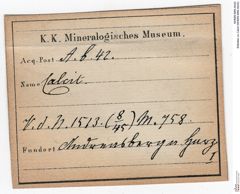 K. K. Mineralogisches Museum.
Acq.-Post A. b. 42.
Name Calcit.
V. d. N. 1513. (8/45) M. 758
Fundort Andreasberg Harz